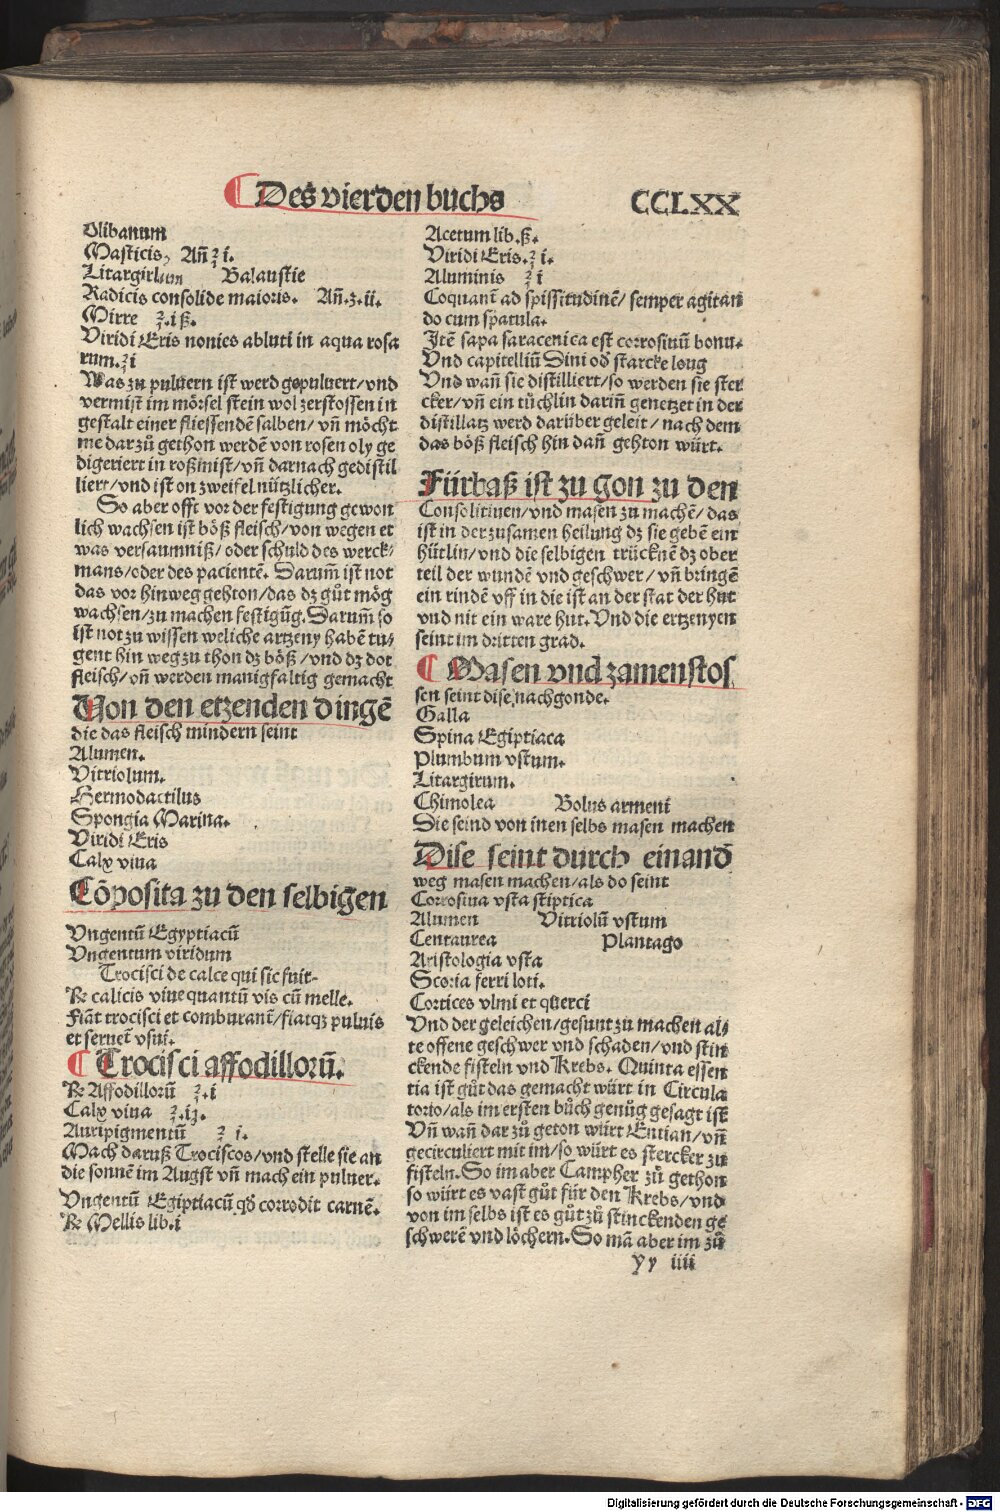 ¶ Des vierden buchs CCLXX
Olibanum
Masticis, Añ ʒ i.
Litargirium Balaustie
Radicis consolide maioris. Añ.ʒ.ii.
Mirre ʒ.i ß.
Viridi Eris nonies abluti in aqua rosa
rum.ʒi
Was zu puluern ist werd gepuluert/vnd
vermist im mörsel stein wol zerstossen in
gestalt einer fliessendē salben/ vñ möcht
me dar zů gethon werdē von rosen oly ge
digeriert in roßmist/vñ darnach gedistil
liert/vnd ist on zweifel nützlicher.
So aber offt vor der festigung gewon
lich wachsen ist böß fleisch/von wegen et
was versaumniß/oder schuld des werck/
mans/oder des pacientē. Darum̄ ist not
das vor hinweg gehton/das dz gůt mög
wachsen/zu machen festigūg. Darum̄ so
ist not zu wissen weliche artzeny habē tu/
gent hin weg zu thon dz böß/vnd dz dot
fleisch/vñ werden manigfaltig gemacht
Von den etzenden dingē
die das fleisch mindern seint
Alumen.
Vitriolum.
Hermodactilus
Spongia Marina.
Viridi Eris
Calx viua
Cōposita zu den selbigen
Vngentū Egyptiacū
Vngentum viridum
Trocisci de calce qui sic fuit-
℞ calicis viue quantū vis cū melle.
Fiāt trocisci et comburant̄/fiatqȝ puluis
et seruet̄ vsui.
¶ Trocisci affodillorū.
℞ Affodillorū ʒ.i
Calx viua ʒ.iȝ.
Auripigmentū ʒ i.
Mach daruß Trociscos/vnd stelle sie an
die sonnē im Augst vñ mach ein puluer.
Vngentū Egiptiacū qđ corrodit carnē.
℞ Mellis lib.i
Acetum lib.ß.
Viridi Eris.ʒ i.
Aluminis ʒ i
Coquant̄ ad spissitudinē/ semper agitan
do cum spatula.
Jtē sapa saracenica est corrosiuū bonu.
Vnd capitelliū Dini od̄ starcke loug
Vnd wañ sie distilliert/so werden sie ster
cker/vñ ein tüchlin dariñ genetzet in der
distillatz werd darüber geleit / nach dem
das böß fleisch hin dañ gehton würt.
Fürbaß ist zu gon zu den
Consolitiuen/vnd masen zu machē/das
ist in der zusamen heilung dz sie gebē ein
hütlin/vnd die selbigen trücknē dz ober
teil der wundē vnd geschwer/ vñ bringē
ein rindē vff in die ist an der stat der hut
vnd nit ein ware hut. Vnd die ertzenyen
seint im dritten grad.
¶ Masen vnd zamenstos
sen seint dise nachgonde.
Galla
Spina Egiptiaca
Plumbum vstum.
Litargirum.
Chimolea Bolus armeni
Die seind von inen selbs masen machen
Dise seint durch einand̄
weg masen machen/als do seint
Corrosiua vsta stiptica
Alumen Vitriolū vstum
Centaurea Plantago
Aristologia vsta
Scoria ferri loti.
Cortices vlmi et querci
Vnd der geleichen/gesunt zu machen al/
te offene geschwer vnd schaden/vnd stin
ckende fisteln vnd Krebs. Quinta essen
tia ist gůt das gemacht würt in Circula
torio/als im ersten bůch genůg gesagt ist
Vñ wañ dar zů geton würt Entian/vñ
gecirculiert mit im/so würt es stercker zu
fisteln. So im aber Campher zů gethon
so würt es vast gůt für den Krebs/vnd
von im selbs ist es gůt zů stinckenden ge
schwerē vnd löchern. So mā aber im zů
yy iiii
Digitalisierung gefördert durch die Deutsche Forschungsgemeinschaft - DFG